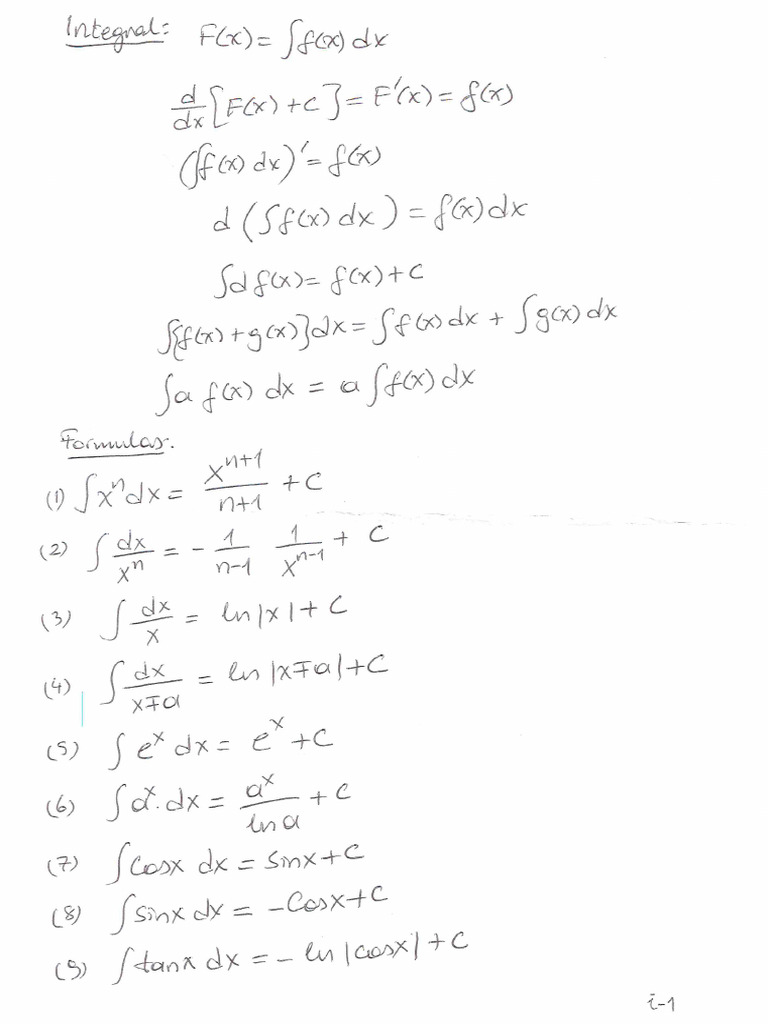 Integral: F(x) = ∫f(x) dx
d/dx [F(x) + c] = F'(x) = f(x)
(∫f(x) dx)' = f(x)
d (∫f(x) dx) = f(x) dx
∫d f(x) = f(x) + c
∫[f(x) + g(x)] dx = ∫f(x) dx + ∫g(x) dx
∫a f(x) dx = a ∫f(x) dx
Formulas.
(1) ∫xⁿ dx = xⁿ⁺¹/(n+1) + c
(2) ∫dx/xⁿ = - 1/(n-1) 1/xⁿ⁻¹ + c
(3) ∫dx/x = ln |x| + c
(4) ∫dx/(x∓a) = ln |x∓a| + c
(5) ∫eˣ dx = eˣ + c
(6) ∫aˣ. dx = aˣ/ln a + c
(7) ∫Cosx dx = Sinx + c
(8) ∫sinx dx = -Cosx + c
(9) ∫tanx dx = - ln |cosx| + c
i-1